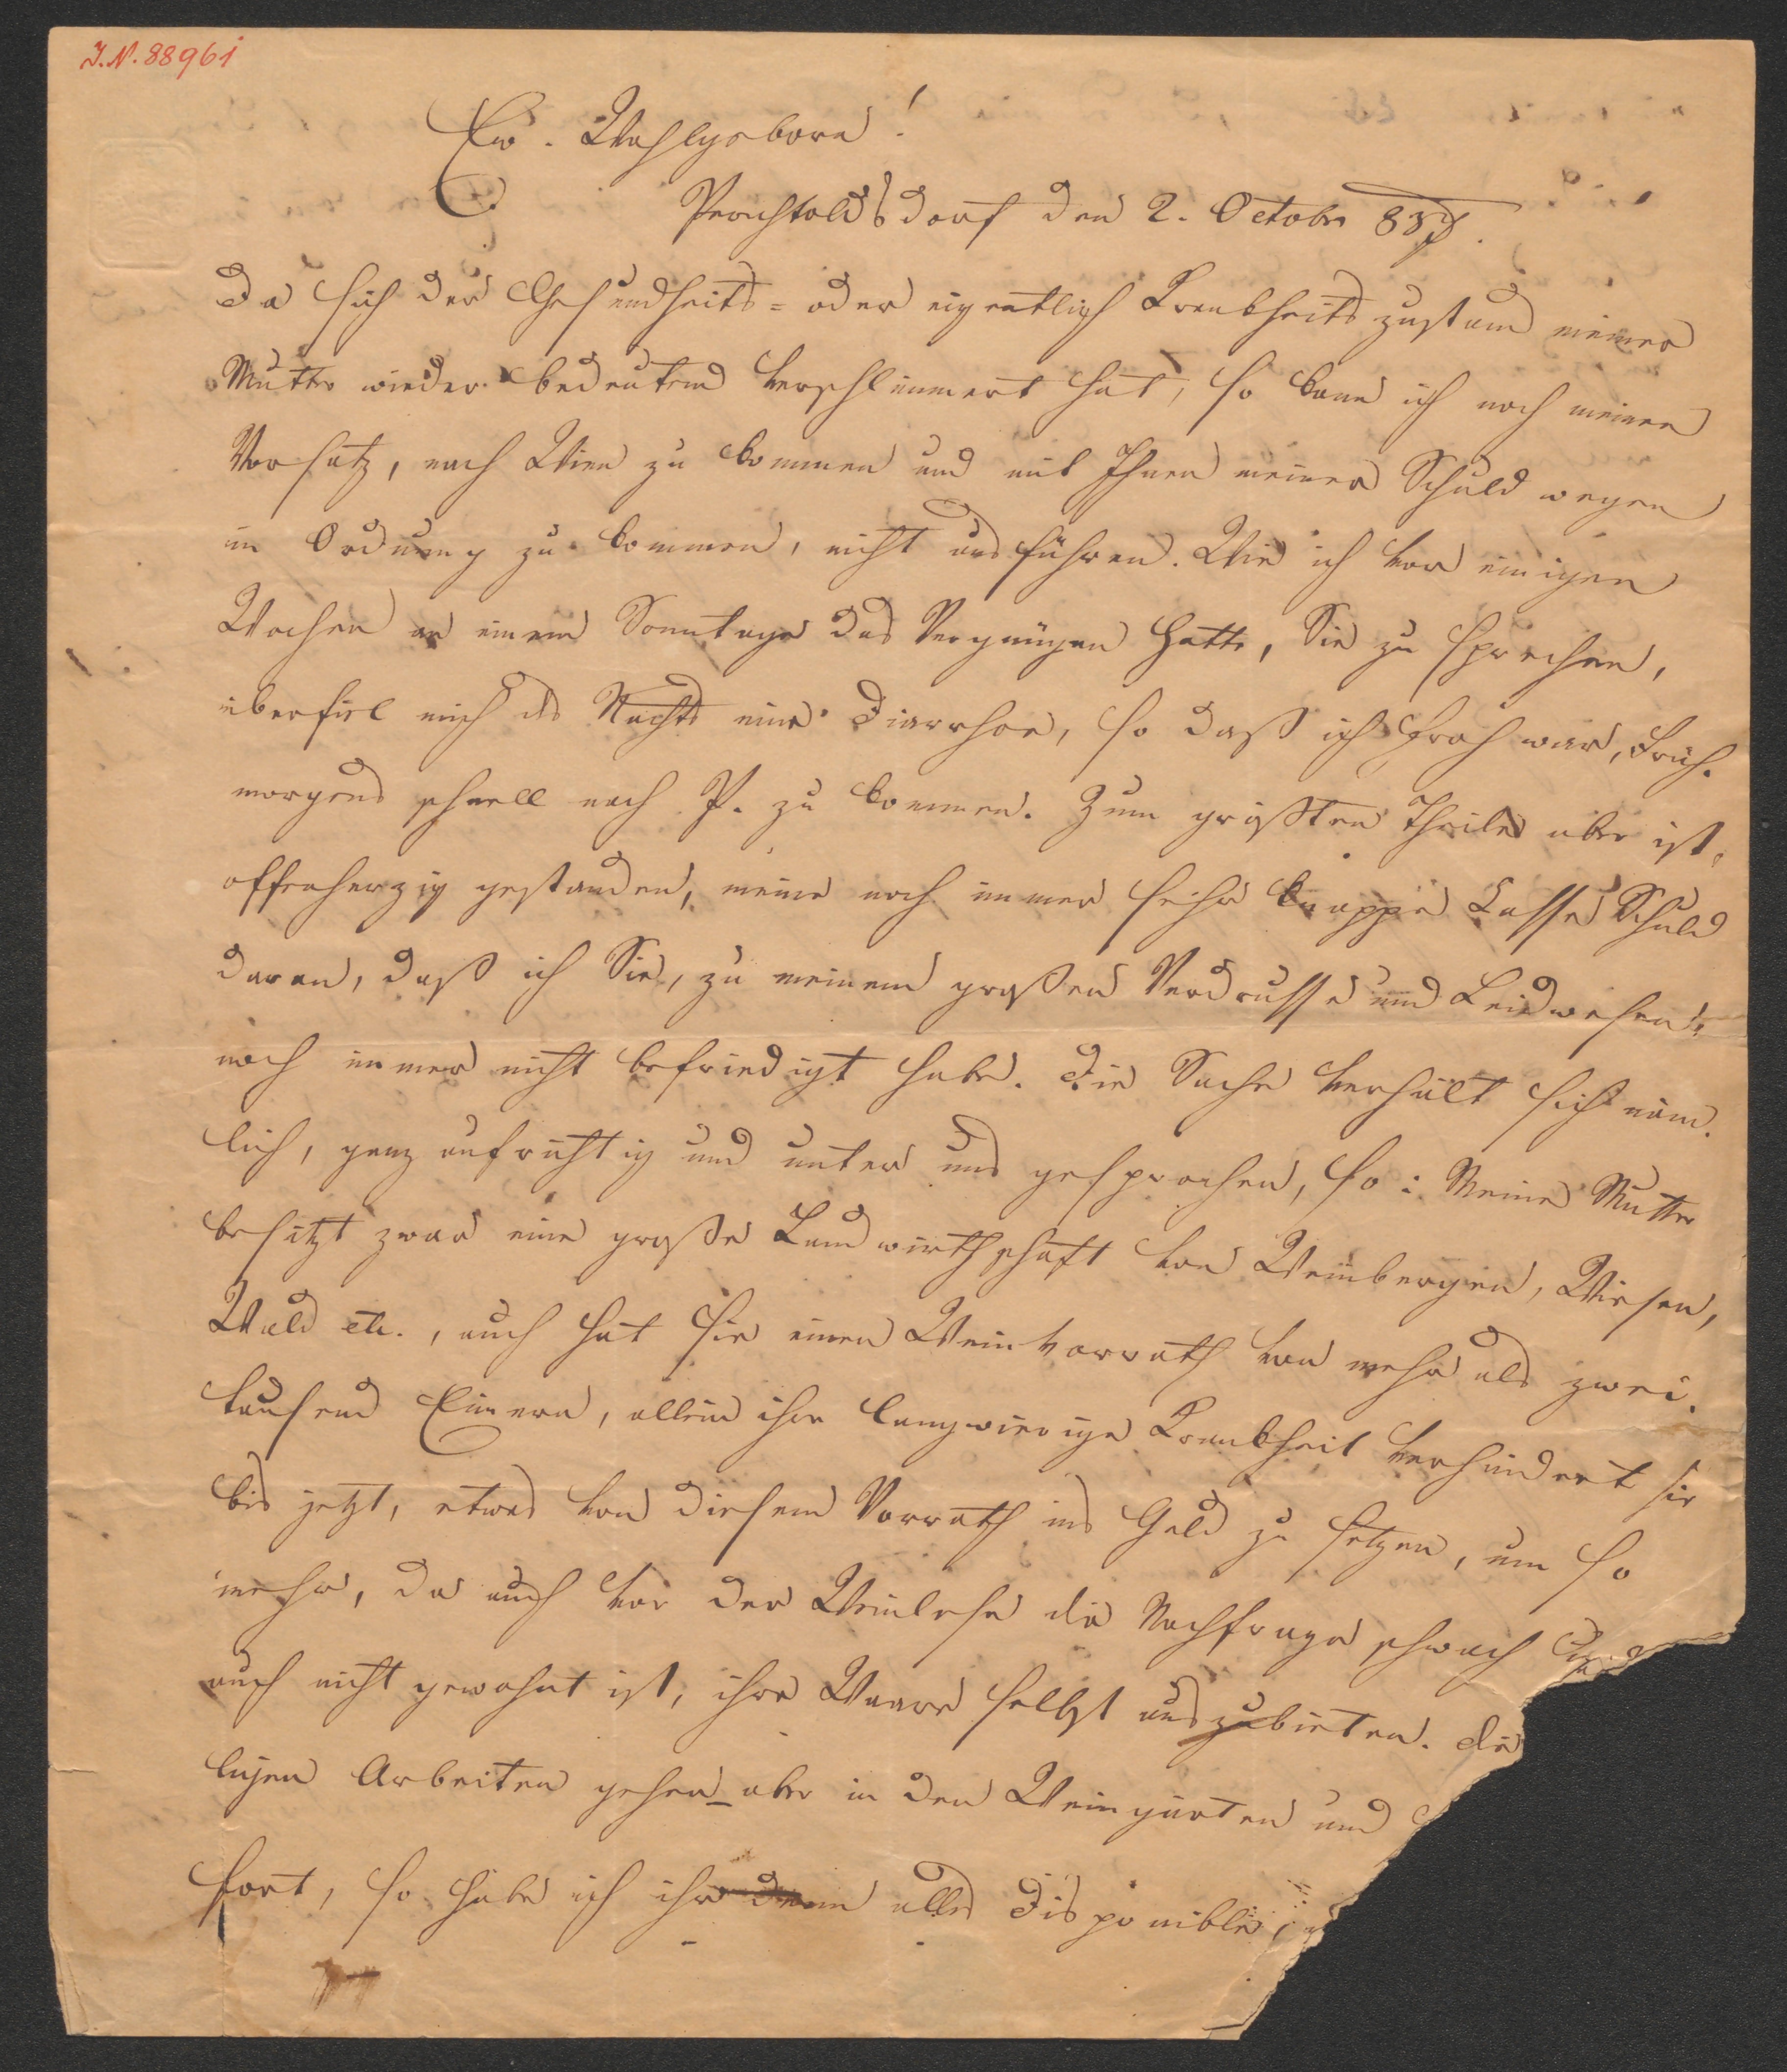 I.N. 88961
Ew. Wohlgeborn!
Perchtoldsdorf den 2. Octobr
Da sich der Gesundheits= oder eigentlich Krankheitszustand meiner
Mutter wieder bedeutend verschlimmert hat, so kann ich noch meinen
Vorsatz, nach Wien zu kommen und mit Ihnen meiner Schuld wegen
in Ordnung zu kommen, nicht ausführen. Wie ich vor einigen
Wochen an einem Sonntage das Vergnügen hatte, Sie zu sprechen,
überfiel mich des Nachts eine Diarrhoe, so daß ich froh war, früh-
morgens schnell nach P. zu kommen. Zum größten Theile aber ist,
offenherzig gestanden, meine noch immer sehr knappe Casse Schuld
daran, daß ich Sie, zu meinem großen Verdrusse und Leidwesen,
noch immer nicht befriedigt habe. Die Sache verhält sich näm-
lich, ganz aufrichtig und unter uns gesprochen, so: Meine Mutter
besitzt zwar eine große Landwirthschaft von Weinbergen, Wiesen,
Wald etc., auch hat sie einen Weinvorrath von mehr als zwei-
tausend Eimern, allein ihre langwierige Krankheit verhindert sie
bis jetzt, etwas von diesem Vorrath ins Geld zu setzen, um so
mehr, da auch vor der Weinlese die Nachfrage schwach
auch nicht gewohnt ist, ihre Waare selbst auszubieten. Die
Arbeiten gehen aber in den Weingärten und
fort, so habe ich ihr denn alles disponible,